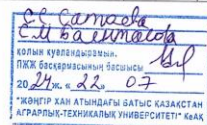 Е.Е Сатаева
Е.М Балентасова
қолын куәландырамын.
ПЖЖ басқармасының басшысы
2024 ж. «22» 07
"ЖӘҢГІР ХАН АТЫНДАҒЫ БАТЫС ҚАЗАҚСТАН
АГРАРЛЫҚ-ТЕХНИКАЛЫҚ УНИВЕРСИТЕТІ" КеАҚ